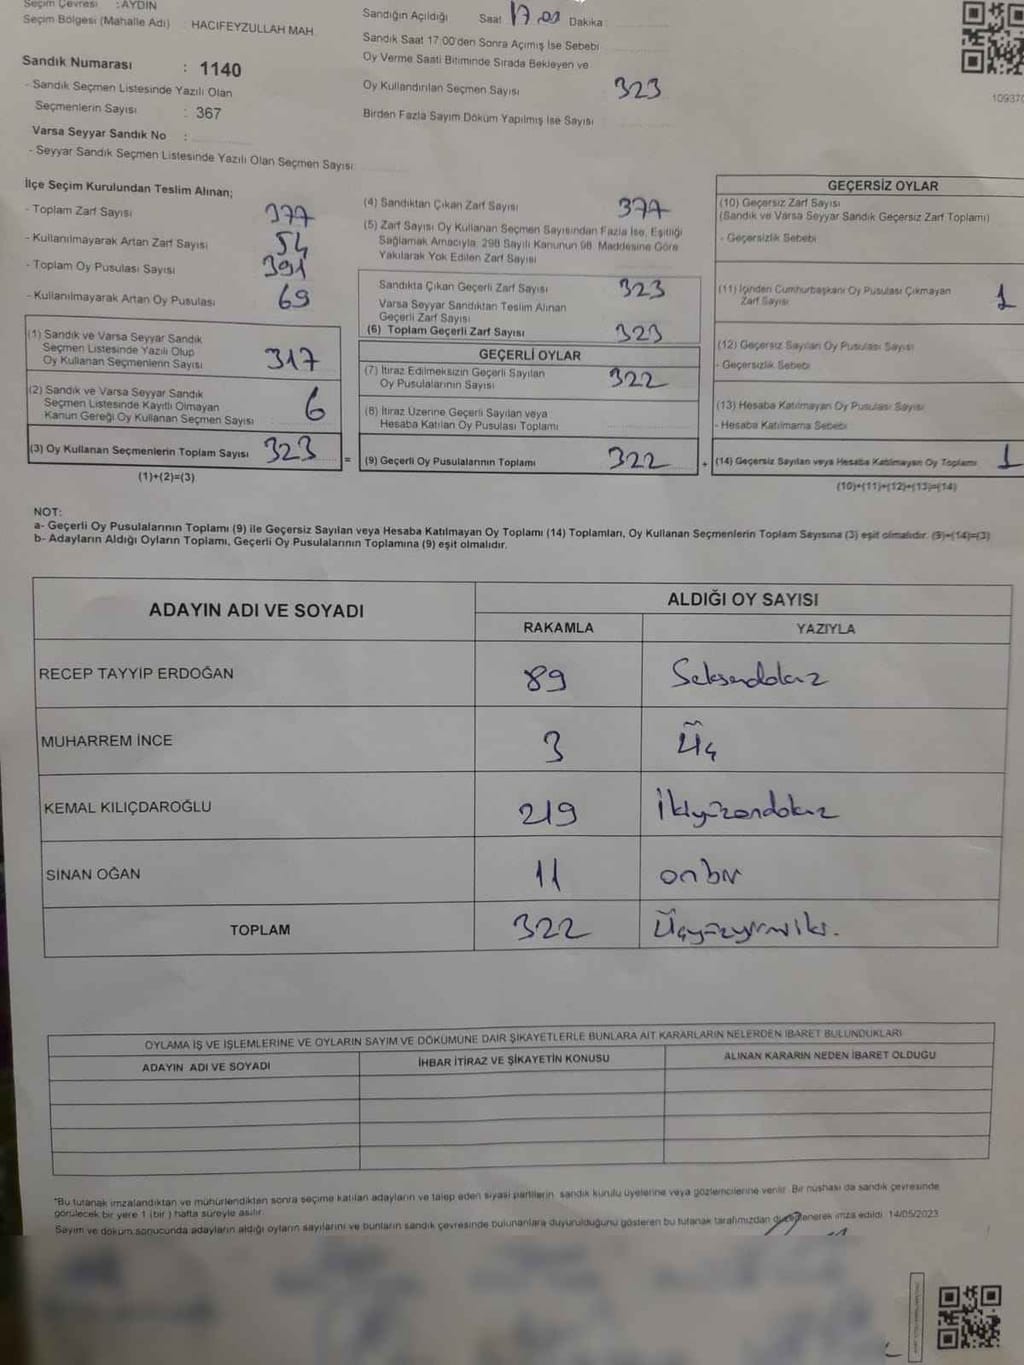 Seçim Çevresi : AYDIN
Seçim Bölgesi (Mahalle Adı) : HACIFEYZULLAH MAH.
Sandık Numarası : 1140
- Sandık Seçmen Listesinde Yazılı Olan
Seçmenlerin Sayısı : 367
Varsa Seyyar Sandık No :
- Seyyar Sandık Seçmen Listesinde Yazılı Olan Seçmen Sayısı:
Sandığın Açıldığı Saat 17.01 Dakika
Sandık Saat 17:00'den Sonra Açımış İse Sebebi
Oy Verme Saati Bitiminde Sırada Bekleyen ve
Oy Kullandırılan Seçmen Sayısı 323
Birden Fazla Sayım Döküm Yapılmış İse Sayısı
İlçe Seçim Kurulundan Teslim Alınan;
- Toplam Zarf Sayısı 377
- Kullanılmayarak Artan Zarf Sayısı 54
- Toplam Oy Pusulası Sayısı 391
- Kullanılmayarak Artan Oy Pusulası 69
(1) Sandık ve Varsa Seyyar Sandık
Seçmen Listesinde Yazılı Olup
Oy Kullanan Seçmenlerin Sayısı 317
(2) Sandık ve Varsa Seyyar Sandık
Seçmen Listesinde Kayıtlı Olmayan
Kanun Gereği Oy Kullanan Seçmen Sayısı 6
(3) Oy Kullanan Seçmenlerin Toplam Sayısı 323
(1)+(2)=(3)
(4) Sandıktan Çıkan Zarf Sayısı 377
(5) Zarf Sayısı Oy Kullanan Seçmen Sayısından Fazla İse, Eşitliği
Sağlamak Amacıyla, 298 Sayılı Kanunun 98. Maddesine Göre
Yakılarak Yok Edilen Zarf Sayısı
Sandıkta Çıkan Geçerli Zarf Sayısı 323
Varsa Seyyar Sandıktan Teslim Alınan
Geçerli Zarf Sayısı
(6) Toplam Geçerli Zarf Sayısı 323
GEÇERLİ OYLAR
(7) İtiraz Edilmeksizin Geçerli Sayılan
Oy Pusulalarının Sayısı 322
(8) İtiraz Üzerine Geçerli Sayılan veya
Hesaba Katılan Oy Pusulası Toplamı
= (9) Geçerli Oy Pusulalarının Toplamı 322
GEÇERSİZ OYLAR
(10) Geçersiz Zarf Sayısı
(Sandık ve Varsa Seyyar Sandık Geçersiz Zarf Toplamı)
- Geçersizlik Sebebi
(11) İçinden Cumhurbaşkanı Oy Pusulası Çıkmayan
Zarf Sayısı 1
(12) Geçersiz Sayılan Oy Pusulası Sayısı
- Geçersizlik Sebebi
(13) Hesaba Katılmayan Oy Pusulası Sayısı
- Hesaba Katılmama Sebebi
+ (14) Geçersiz Sayılan veya Hesaba Katılmayan Oy Toplamı 1
(10)+(11)+(12)+(13)=(14)
NOT:
a- Geçerli Oy Pusulalarının Toplamı (9) ile Geçersiz Sayılan veya Hesaba Katılmayan Oy Toplamı (14) Toplamları, Oy Kullanan Seçmenlerin Toplam Sayısına (3) eşit olmalıdır. (9)+(14)=(3)
b- Adayların Aldığı Oyların Toplamı, Geçerli Oy Pusulalarının Toplamına (9) eşit olmalıdır.
ADAYIN ADI VE SOYADI ALDIĞI OY SAYISI
RAKAMLA YAZIYLA
RECEP TAYYİP ERDOĞAN 89 Seksendokuz
MUHARREM İNCE 3 Üç
KEMAL KILIÇDAROĞLU 219 İkiyüzondokuz
SİNAN OĞAN 11 onbir
TOPLAM 322 Üçyüzyirmiiki.
OYLAMA İŞ VE İŞLEMLERİNE VE OYLARIN SAYIM VE DÖKÜMÜNE DAİR ŞİKAYETLERLE BUNLARA AİT KARARLARIN NELERDEN İBARET BULUNDUKLARI
ADAYIN ADI VE SOYADI İHBAR İTİRAZ VE ŞİKAYETİN KONUSU ALINAN KARARIN NEDEN İBARET OLDUĞU
*Bu tutanak imzalandıktan ve mühürlendikten sonra seçime katılan adayların ve talep eden siyasi partilerin sandık kurulu üyelerine veya gözlemcilerine verilir. Bir nüshası da sandık çevresinde
görülecek bir yere 1 (bir) hafta süreyle asılır.
Sayım ve döküm sonucunda adayların aldığı oyların sayılarını ve bunların sandık çevresinde bulunanlara duyurulduğunu gösteren bu tutanak tarafımızdan düzenlenerek imza edildi. 14/05/2023